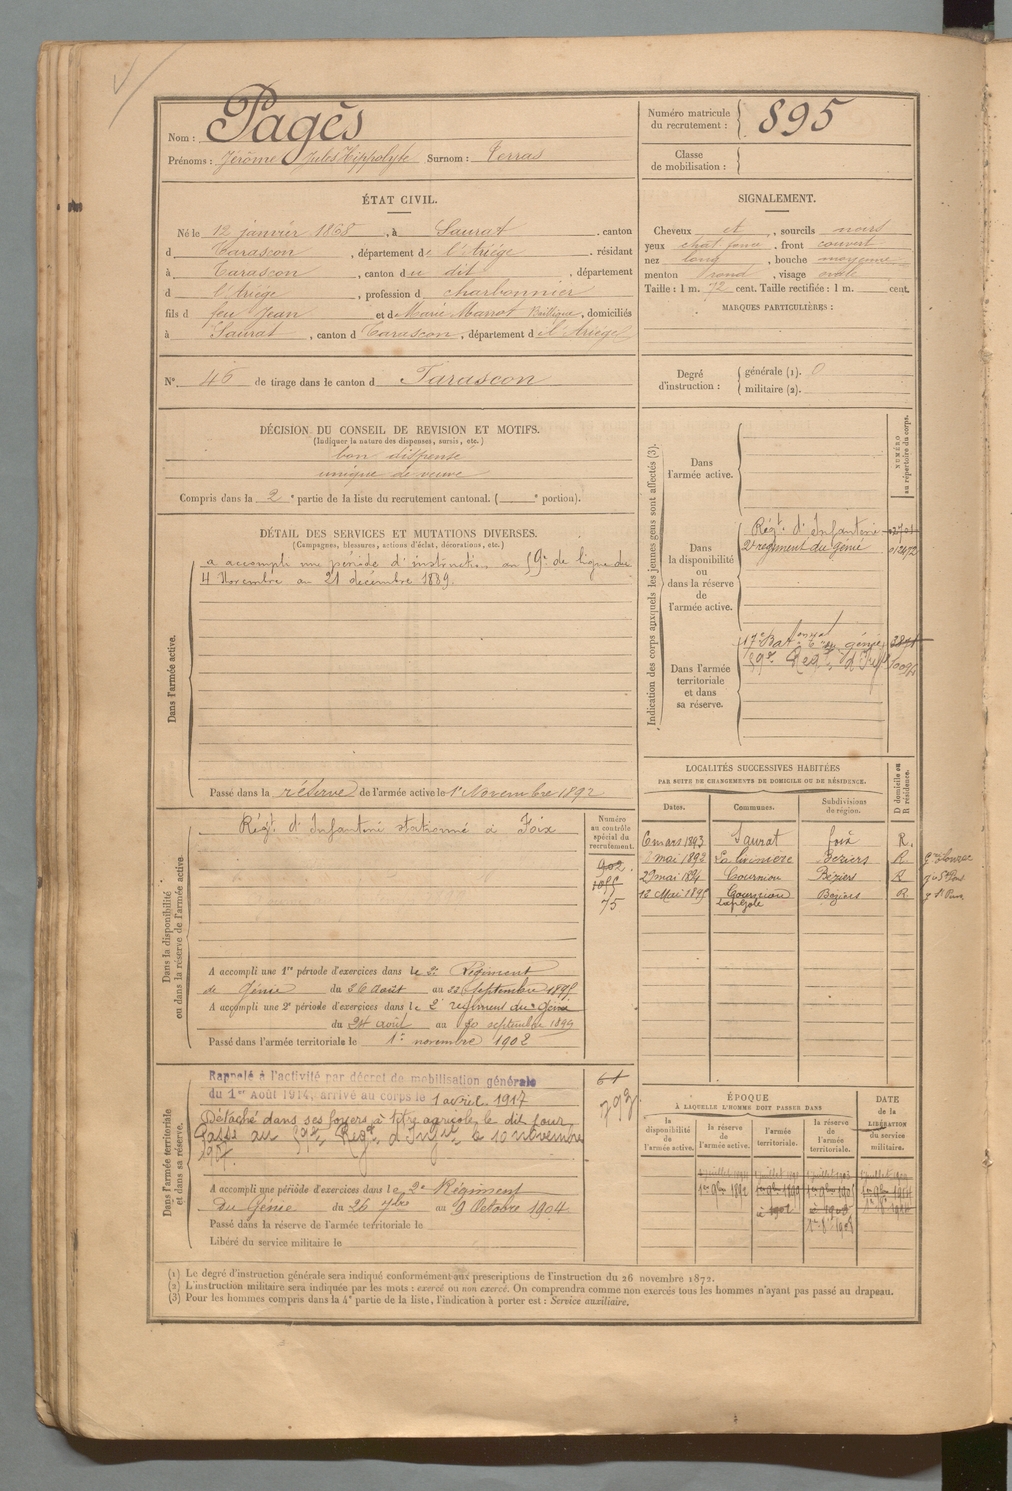 Nom : Pagès
Prénoms : Jérôme Jules Hippolyte Surnom : Terras
Numéro matricule du recrutement : 895
Classe de mobilisation :
ÉTAT CIVIL.
Né le 12 janvier 1868, à Saurat, canton
d Tarascon, département de l'Ariége, résidant
à Tarascon, canton du dit, département
d l'Ariége, profession d charbonnier
fils d feu Jean et de Marie Marrot, domiciliés
à Saurat, canton d Tarascon, département d l'Ariége
N° 46 de tirage dans le canton d Tarascon
SIGNALEMENT.
Cheveux et, sourcils noirs
yeux chat. foncé, front couvert
nez long, bouche moyenne
menton rond, visage ovale
Taille : 1 m. 72 cent. Taille rectifiée : 1 m. cent.
MARQUES PARTICULIÈRES :
Degré d'instruction : générale (1). 0
militaire (2).
DÉCISION DU CONSEIL DE REVISION ET MOTIFS.
(Indiquer la nature des dispenses, sursis, etc.)
bon dispensé
unique de veuve
Compris dans la 2e partie de la liste du recrutement cantonal. ( e portion).
DÉTAIL DES SERVICES ET MUTATIONS DIVERSES.
(Campagnes, blessures, actions d'éclat, décorations, etc.)
Dans l'armée active.
a accompli une période d'instruction au 59e de ligne du
4 Novembre au 21 décembre 1889.
Passé dans la réserve de l'armée active le 1er Novembre 1892
Indication des corps auxquels les jeunes gens sont affectés (3).
NUMÉRO au répertoire du corps.
Dans l'armée active.
Dans la disponibilité ou dans la réserve de l'armée active.
Régt. d'Infanterie
2e régiment du génie
Dans l'armée territoriale et dans sa réserve.
17e Bat. du génie
59e Regt d'Infie
LOCALITÉS SUCCESSIVES HABITÉES
PAR SUITE DE CHANGEMENTS DE DOMICILE OU DE RÉSIDENCE.
Dates. Communes. Subdivisions de région. D domicile ou R résidence.
6 mars 1893 Saurat foix R.
mai 1893 Béziers R
29 mai 1894 Courniou Béziers R
12 Mai 1895 Courniou Béziers R
Dans la disponibilité ou dans la réserve de l'armée active.
Régt. d'Infanterie stationné à Foix
Numéro au contrôle spécial du recrutement.
902
1085
75
A accompli une 1re période d'exercices dans le 2e Régiment
de Génie du 26 août au 22 Septembre 1895
A accompli une 2e période d'exercices dans le 2e régiment du Génie
du 24 août au 20 septembre 1899
Passé dans l'armée territoriale le 1er novembre 1902
Dans l'armée territoriale et dans sa réserve.
Rappelé à l'activité par décret de mobilisation générale
du 1er Août 1914, arrivé au corps le 1 avril 1917
Détaché dans ses foyers à titre agricole le dit jour
Passé au 59e Regt d'Infie le 10 novembre
1917.
61
793
A accompli une période d'exercices dans le 2e Régiment
Du Génie du 26 7bre au 9 Octobre 1904
Passé dans la réserve de l'armée territoriale le
Libéré du service militaire le
ÉPOQUE
À LAQUELLE L'HOMME DOIT PASSER DANS
la disponibilité de l'armée active. la réserve de l'armée active. l'armée territoriale. la réserve de l'armée territoriale.
DATE de la LIBÉRATION du service militaire.
1er 9bre 1892
(1) Le degré d'instruction générale sera indiqué conformément aux prescriptions de l'instruction du 26 novembre 1872.
(2) L'instruction militaire sera indiquée par les mots : exercé ou non exercé. On comprendra comme non exercés tous les hommes n'ayant pas passé au drapeau.
(3) Pour les hommes compris dans la 4e partie de la liste, l'indication à porter est : Service auxiliaire.